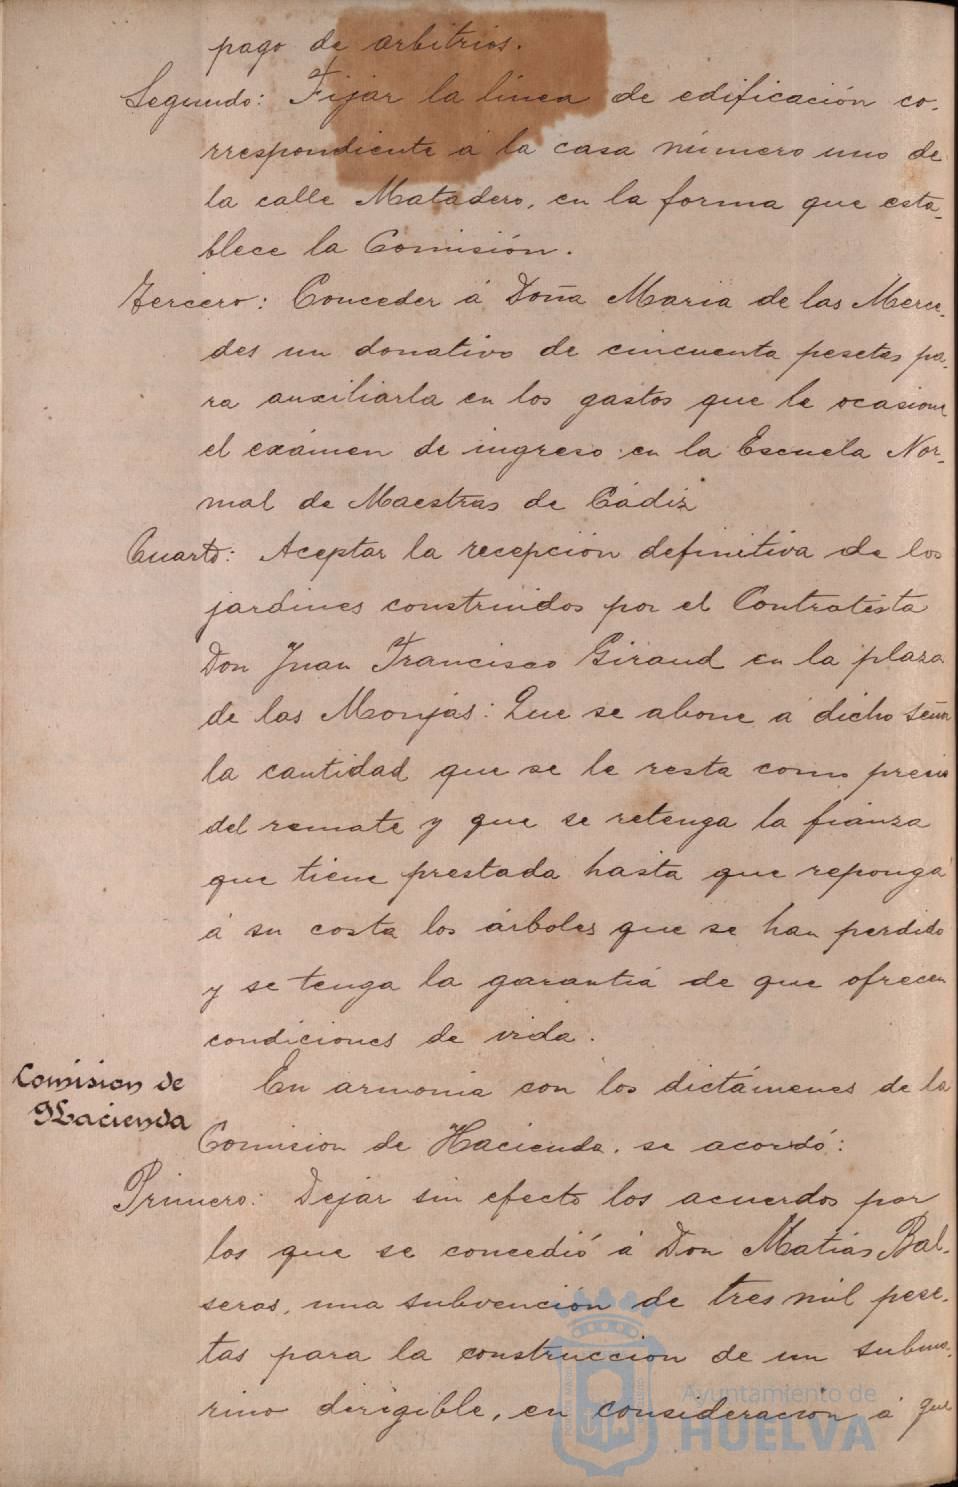 pago de arbitrios.
Segundo: Fijar la linea de edificación co-
rrespondiente á la casa número uno de
la calle Matadero, en la forma que esta-
blece la Comisión.
Tercero: Conceder á Doña Maria de las Merce-
des un donativo de cincuenta pesetas pa-
ra auxiliarla en los gastos que le ocasione
el exámen de ingreso en la Escuela Nor-
mal de Maestras de Cádiz
Cuarto: Aceptar la recepción definitiva de los
jardines construidos por el Contratista
Don Juan Francisco Giraud en la plaza
de las Monjas: Que se abone á dicho señor
la cantidad que se le resta como precio
del remate y que se retenga la fianza
que tiene prestada hasta que reponga
á su costa los árboles que se han perdido
y se tenga la garantia de que ofrecen
condiciones de vida.
Comision de
Hacienda
En armonia con los dictámenes de la
Comision de Hacienda, se acordó:
Primero: Dejar sin efecto los acuerdos por
los que se concedió á Don Matias Bal-
seras, una subvención de tres mil pese-
tas para la construccion de un subma-
rino dirigible, en consideracion á que
Ayuntamiento de
HUELVA